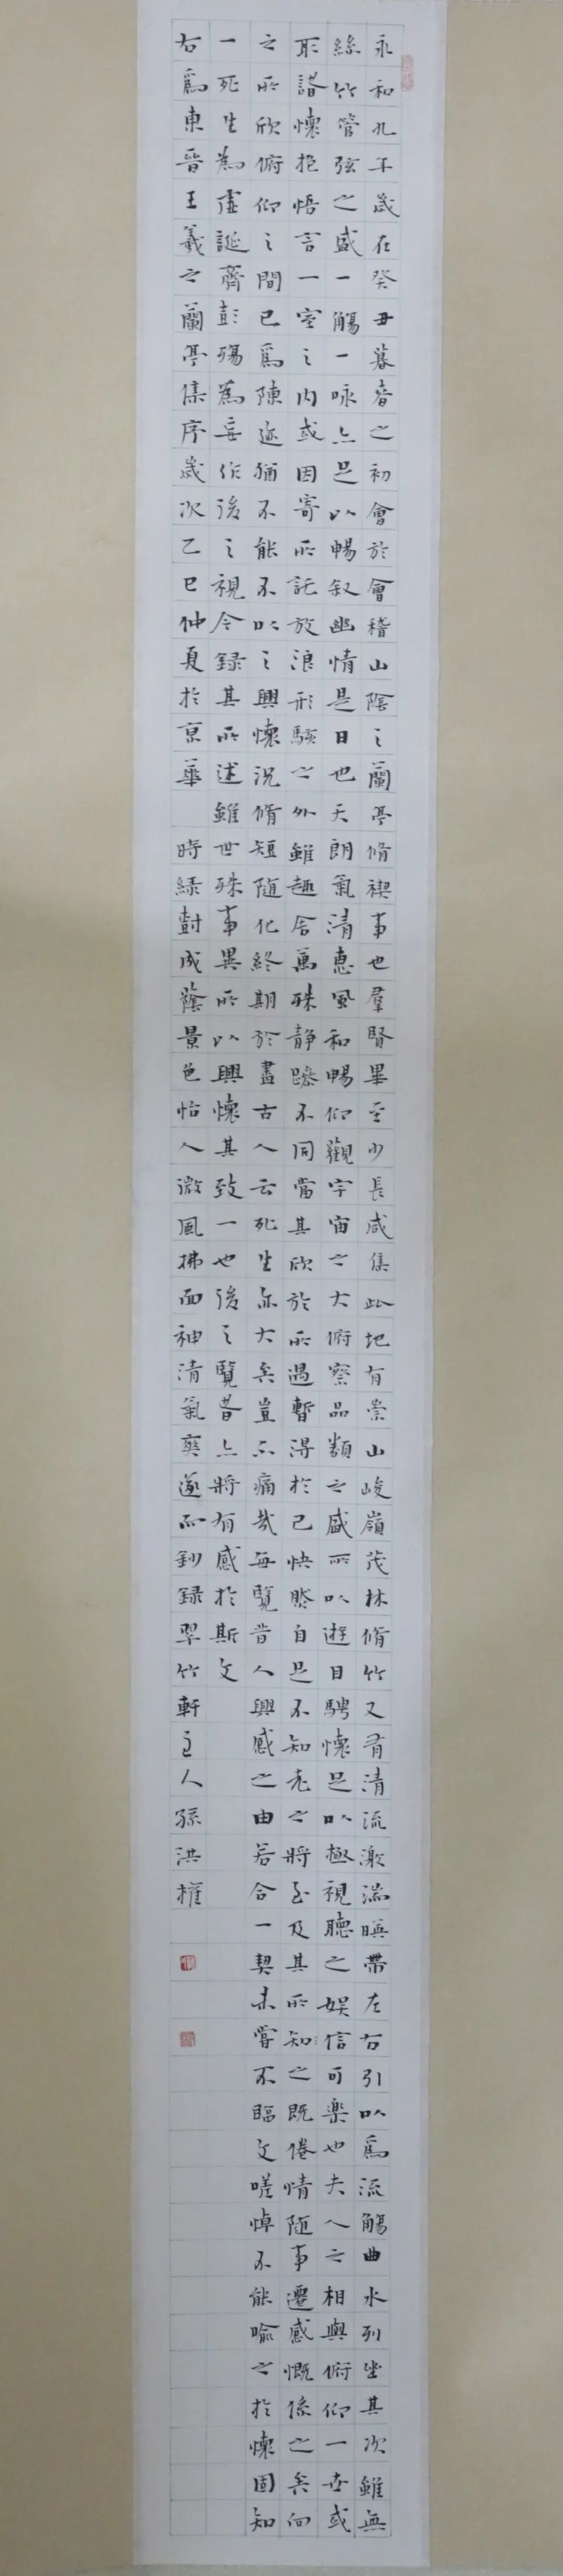 永和九年歲在癸丑暮春之初會於會稽山陰之蘭亭脩禊事也羣賢畢至少長咸集此地有崇山峻嶺茂林脩竹又有清流激湍暎帶左右引以爲流觴曲水列坐其次雖無
絲竹管弦之盛一觴一咏亦足以暢叙幽情是日也天朗氣清惠風和暢仰觀宇宙之大俯察品類之盛所以遊目騁懷足以極視聽之娛信可樂也夫人之相與俯仰一世或
取諸懷抱悟言一室之內或因寄所託放浪形骸之外雖趣舍萬殊静躁不同當其欣於所遇暫得於己快然自足不知老之將至及其所知之既倦情隨事遷感慨係之矣向
之所欣俯仰之間已爲陳迹猶不能不以之興懷況脩短隨化終期於盡古人云死生亦大矣豈不痛哉每覽昔人興感之由若合一契未嘗不臨文嗟悼不能喻之於懷固知
一死生為虛誕齊彭殤為妄作後之視今録其所述雖世殊事異所以興懷其致一也後之覽者亦將有感於斯文
右爲東晉王羲之蘭亭集序歲次乙巳仲夏於京華 時綠樹成蔭景色怡人微風拂面神清氣爽遂而鈔録翠竹軒主人孫洪權